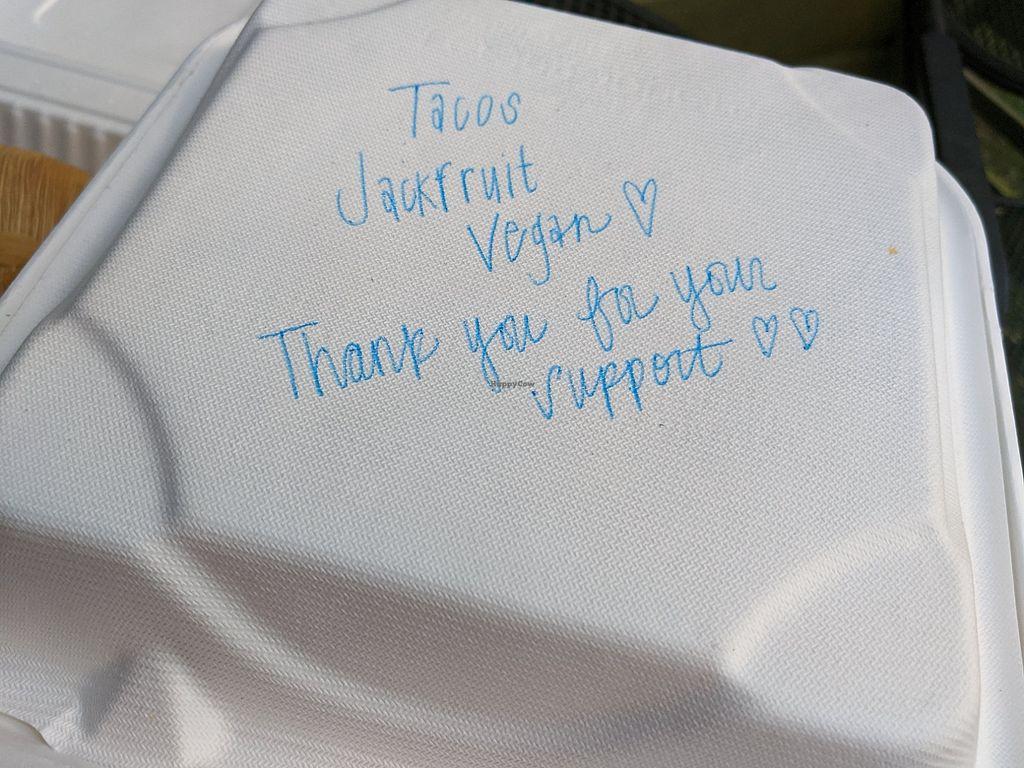 Tacos
Jackfruit
Vegan ♡
Thank you for your
support ♡♡
HappyCow